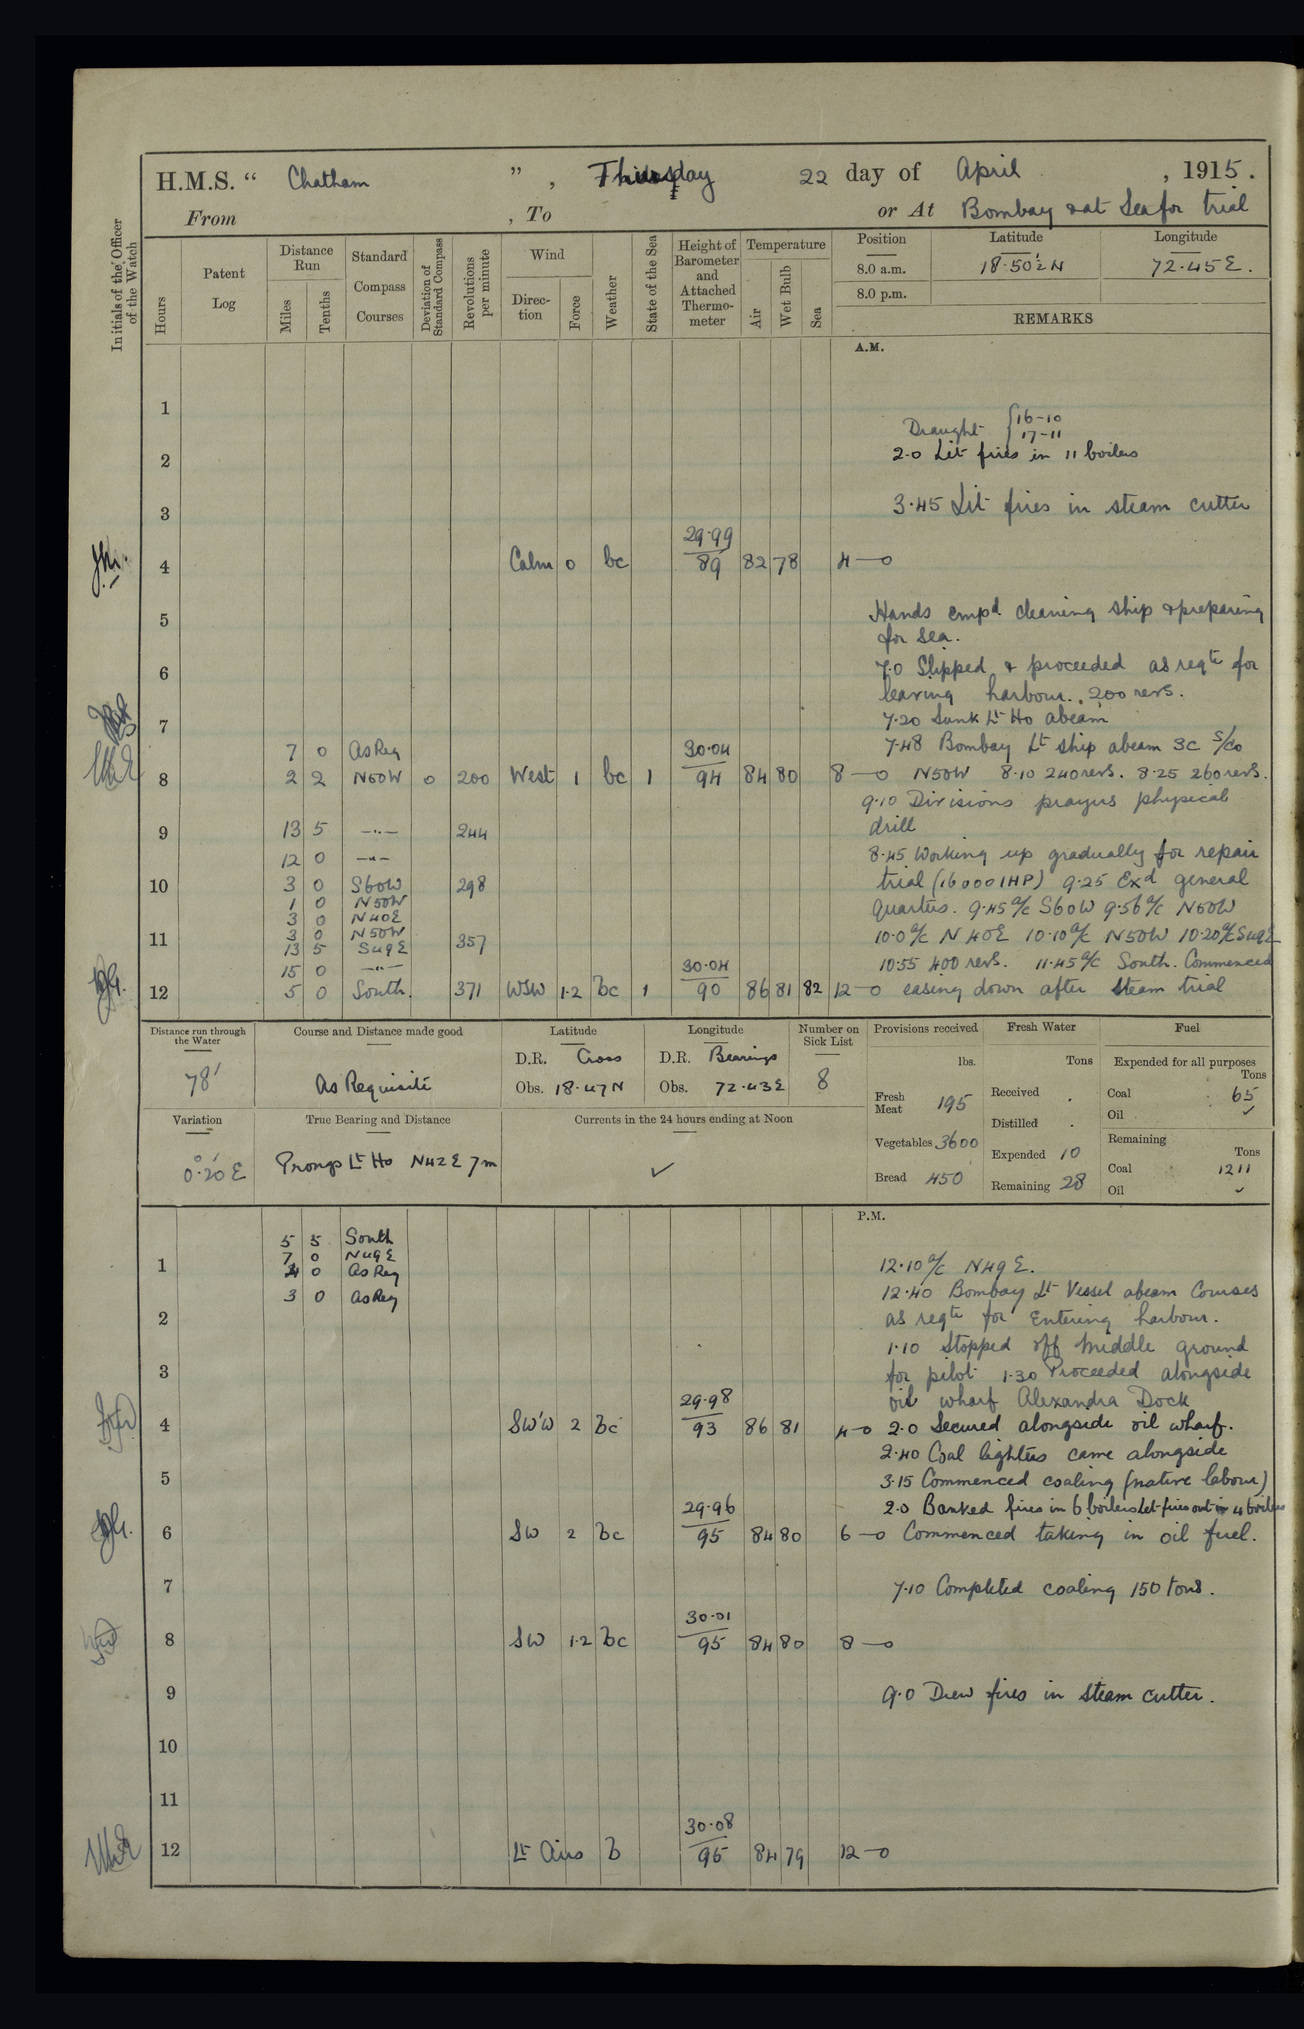 H.M.S. “ Chatham ” , Thursday 22 day of April , 1915.
From , To or At Bombay & at Sea for trial
Initials of the Officer of the Watch
Hours
Patent Log
Distance Run
Miles
Tenths
Standard Compass Courses
Deviation of Standard Compass
Revolutions per minute
Wind
Direc-tion
Force
Weather
State of the Sea
Height of Barometer and Attached Thermo-meter
Temperature
Air
Wet Bulb
Sea
Position Latitude Longitude
8.0 a.m. 18·50½ N 72·45 E.
8.0 p.m.
REMARKS
A.M.
1
Draught { 16-10
17-11
2
2·0 Lit fires in 11 boilers
3
3·45 Lit fires in steam cutter
29·99
4 Calm 0 bc 89 82 78 4—0
5
Hands empd. cleaning ship & preparing
for sea.
6
7·0 Slipped & proceeded as reqte for
leaving harbour. 200 revs.
7
7·20 Sunk Lt Ho abeam
7 0 As Req 30·04 7·48 Bombay Lt ship abeam 3c S/Co
8 2 2 N50W 0 200 West 1 bc 1 94 84 80 8—0 N50W 8·10 240 revs. 8·25 260 revs.
9·10 Divisions prayers physical
9 13 5 —"— 244 drill
12 0 —"— 8·45 Working up gradually for repair
10 3 0 S60W 298 trial (16000 IHP) 9·25 Exd general
1 0 N50W quarters. 9·45 a/c S60W 9·56 a/c N50W
3 0 N40E
3 0 N50W
11 13 5 S49E 357 10·0 a/c N40E 10·10 a/c N50W 10·20 a/c S49E
15 0 —"— 30·04 10·55 400 revs. 11·45 a/c South. Commenced
12 5 0 South. 371 WSW 1·2 bc 1 90 86 81 82 12—0 easing down after steam trial
Distance run through the Water
78'
Course and Distance made good
As Requisite
Latitude
D.R. Cross
Obs. 18·47 N
Longitude
D.R. Bearings
Obs. 72·43 E
Number on Sick List
8
Provisions received
lbs.
Fresh Meat 195
Vegetables 3600
Bread 450
Fresh Water
Tons
Received .
Distilled .
Expended 10
Remaining 28
Fuel
Expended for all purposes
Tons
Coal 65
Oil ✓
Remaining
Tons
Coal 1211
Oil ✓
Variation
0°·20' E
True Bearing and Distance
Prongs Lt Ho N42E 7m
Currents in the 24 hours ending at Noon
✓
P.M.
5 5 South
7 0 N49E
1 4 0 As Req 12·10 a/c N49E.
3 0 As Req 12·40 Bombay Lt Vessel abeam Courses
2 as reqte for Entering harbour.
1·10 Stopped off Middle ground
3 for pilot 1·30 Proceeded alongside
29·98 oil wharf Alexandra Dock
4 SW'W 2 bc 93 86 81 4—0 2·0 Secured alongside oil wharf.
2·40 Coal lighters came alongside
5 3·15 Commenced coaling (native labour)
29·96 2·0 Banked fires in 6 boilers Let fires out in 4 boilers
6 SW 2 bc 95 84 80 6—0 Commenced taking in oil fuel.
7 7·10 Completed coaling 150 tons.
30·01
8 SW 1·2 bc 95 84 80 8—0
9 9·0 Drew fires in steam cutter.
10
11
30·08
12 Lt Airs b 95 84 79 12—0